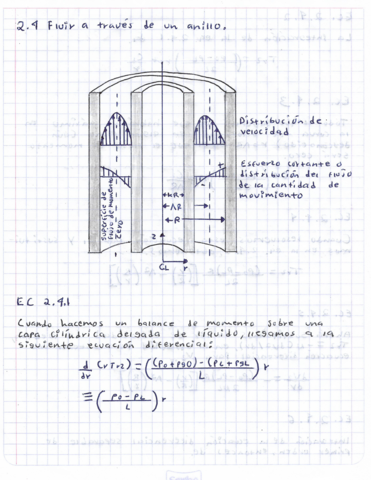 2.4 Fluir a través de un anillo.
Distribución de
velocidad
Esfuerzo cortante o
distribución del flujo
de la cantidad de
movimiento
Superficie de
flujo de momento
zero
kR
λR
R
z
CL
r
EC 2.4.1
Cuando hacemos un balance de momento sobre una
capa cilíndrica delgada de líquido, llegamos a la
siguiente ecuación diferencial:
d/dr (rTrz) = ((P0+ρg0)-(PL+ρgL)/L) r
≡ (P0-PL/L) r